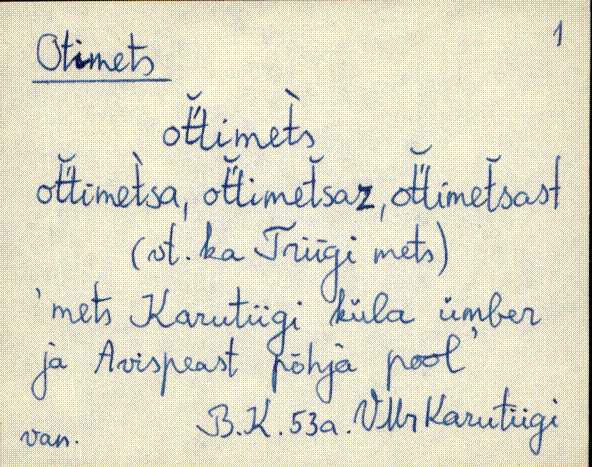 1
Otimets
ot̆timet̀s
ot̆timet̀sa, ot̆timet̆saz, ot̆timet̆sast
(vt. ka Triigi mets)
'mets Karutiigi küla ümber
ja Avispeast põhja pool'
van. B.K. 53a. VMr Karutiigi